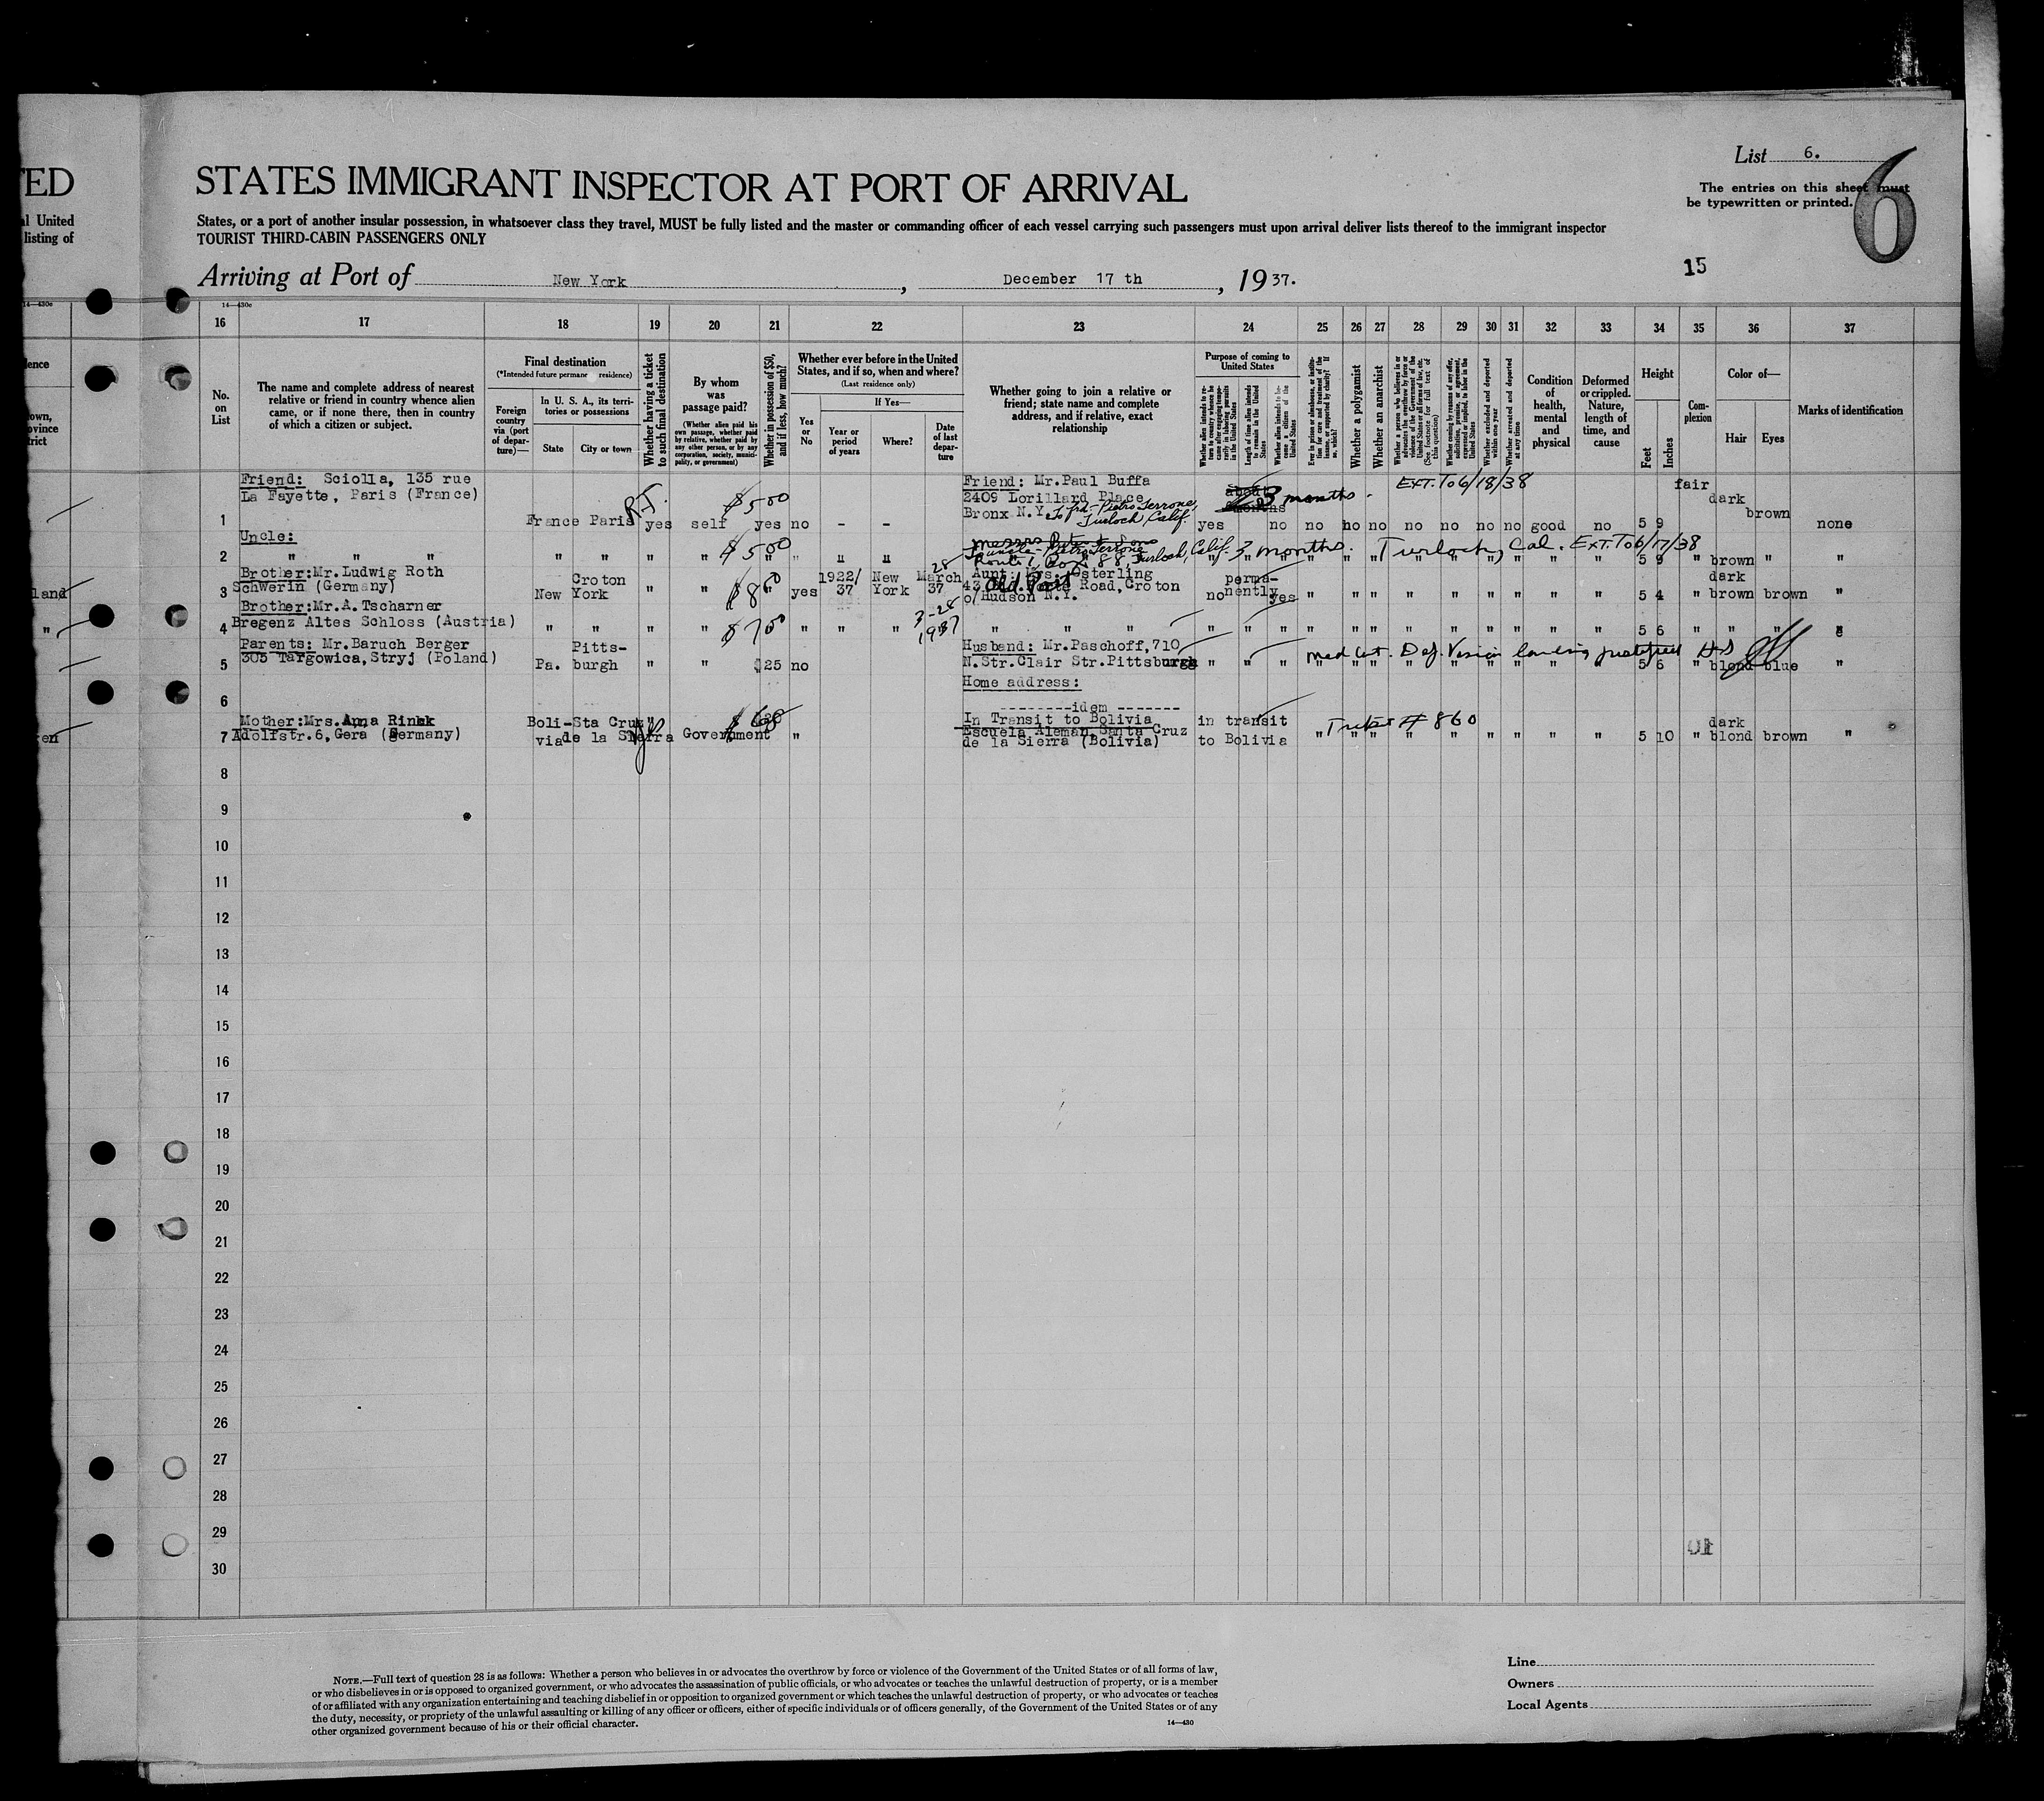 TED
al United
listing of
List 6.
6
STATES IMMIGRANT INSPECTOR AT PORT OF ARRIVAL
The entries on this sheet must
be typewritten or printed.
States, or a port of another insular possession, in whatsoever class they travel, MUST be fully listed and the master or commanding officer of each vessel carrying such passengers must upon arrival deliver lists thereof to the immigrant inspector
TOURIST THIRD-CABIN PASSENGERS ONLY
15
Arriving at Port of New York, December 17 th, 1937.
14—430c 14—430c
16 17 18 19 20 21 22 23 24 25 26 27 28 29 30 31 32 33 34 35 36 37
No. on List
The name and complete address of nearest relative or friend in country whence alien came, or if none there, then in country of which a citizen or subject.
Final destination
(*Intended future permane residence)
Foreign country via (port of departure)—
In U. S. A., its territories or possessions
State
City or town
Whether having a ticket to such final destination
By whom was passage paid?
(Whether alien paid his own passage, whether paid by relative, whether paid by any other person, or by any corporation, society, municipality, or government)
Whether in possession of $50, and if less, how much?
Whether ever before in the United States, and if so, when and where?
(Last residence only)
Yes or No
If Yes—
Year or period of years
Where?
Date of last departure
Whether going to join a relative or friend; state name and complete address, and if relative, exact relationship
Purpose of coming to United States
Whether alien intends to return to country whence he came after engaging temporarily in laboring pursuits in the United States
Length of time alien intends to remain in the United States
Whether alien intends to become a citizen of the United States
Ever in prison or almshouse, or institution for care and treatment of the insane, or supported by charity? If so, which?
Whether a polygamist
Whether an anarchist
Whether a person who believes in or advocates the overthrow by force or violence of the Government of the United States or all forms of law, etc. (See footnote for full text of this question)
Whether coming by reasons of any offer, solicitation, promise, or agreement, expressed or implied, to labor in the United States
Whether excluded and deported within one year
Whether arrested and deported at any time
Condition of health, mental and physical
Deformed or crippled. Nature, length of time, and cause
Height
Feet
Inches
Complexion
Color of—
Hair
Eyes
Marks of identification
ence
own,
ovince
trict
Friend: Sciolla, 135 rue
La Fayette, Paris (France)
R.T.
$500
Friend: Mr.Paul Buffa
2409 Lorillard Place
Bronx N.Y. To frd-Pietro Terrone,
Turlock, Calif.
3 months.
EXT. To 6/18/38
fair
dark
brown
1 France Paris yes self yes no - - yes no no no no no no no no good no 5 9 none
Uncle:
2 " " " " " " " $500 " " " "
To uncle-Pietro Terrone
Route 1, Box 88, Turlock, Calif. 3 months. Turlock, Cal. EXT. To 6/17/38
5 9 " brown " "
Brother:Mr.Ludwig Roth
Schwerin (Germany)
land
3 New York Croton " " $80 yes 1922/37 New York March 28 37
Aunt: Mrs. Osterling
43 Old Post Road, Croton
o/Hudson N.Y.
no permanently yes " " " " " " " " " 5 4 " dark brown brown "
Brother:Mr.A.Tscharner
Bregenz Altes Schloss (Austria)
4 " " " " $70 " " " 3-28 1937 " " " " " " " " " " " " " " " 5 6 " " " "
Parents: Mr.Baruch Berger
305 Targowica,Stryj (Poland)
5 Pa. Pittsburgh " " $25 no
Husband: Mr.Paschoff,710
N.Str.Clair Str.Pittsburgh
" " " Med Cert. Def. Vision landing justified
5 6 " blond blue "
6
Home address:
--------idem -------
Mother:Mrs.Anna Rinkk
Adolfstr.6, Gera (Germany)
7 Bolivia Sta Cruz de la Sierra " Government $60 "
In Transit to Bolivia
Escuela Aleman, Santa Cruz
de la Sierra (Bolivia)
in transit
to Bolivia
# 860
" " " " " " " " " 5 10 " dark blond brown "
8
9
10
11
12
13
14
15
16
17
18
19
20
21
22
23
24
25
26
27
28
29
30
NOTE.—Full text of question 28 is as follows: Whether a person who believes in or advocates the overthrow by force or violence of the Government of the United States or of all forms of law,
or who disbelieves in or is opposed to organized government, or who advocates the assassination of public officials, or who advocates or teaches the unlawful destruction of property, or is a member
of or affiliated with any organization entertaining and teaching disbelief in or opposition to organized government or which teaches the unlawful destruction of property, or who advocates or teaches
the duty, necessity, or propriety of the unlawful assaulting or killing of any officer or officers, either of specific individuals or of officers generally, of the Government of the United States or of any
other organized government because of his or their official character.
14—430
Line
Owners
Local Agents